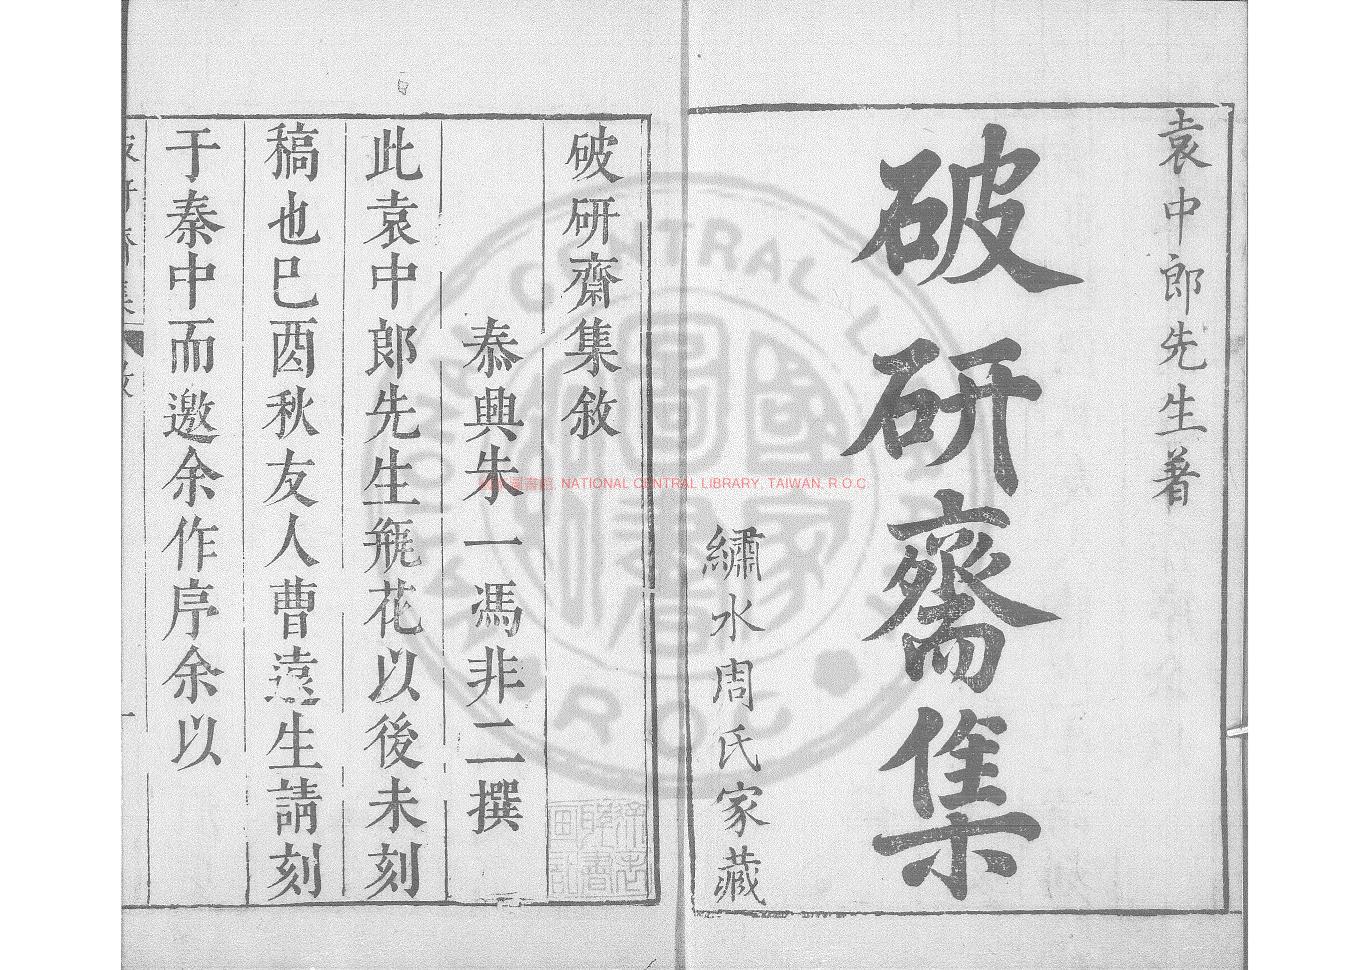 袁中郎先生著
破研齋集
繡水周氏家藏
破研齋集敘
泰興朱一馮非二撰
此袁中郎先生瓶花以後未刻
稿也己酉秋友人曹遠生請刻
于秦中而邀余作序余以
NATIONAL CENTRAL LIBRARY, TAIWAN, R.O.C.
國家圖書館
NATIONAL CENTRAL LIBRARY
R.O.C.